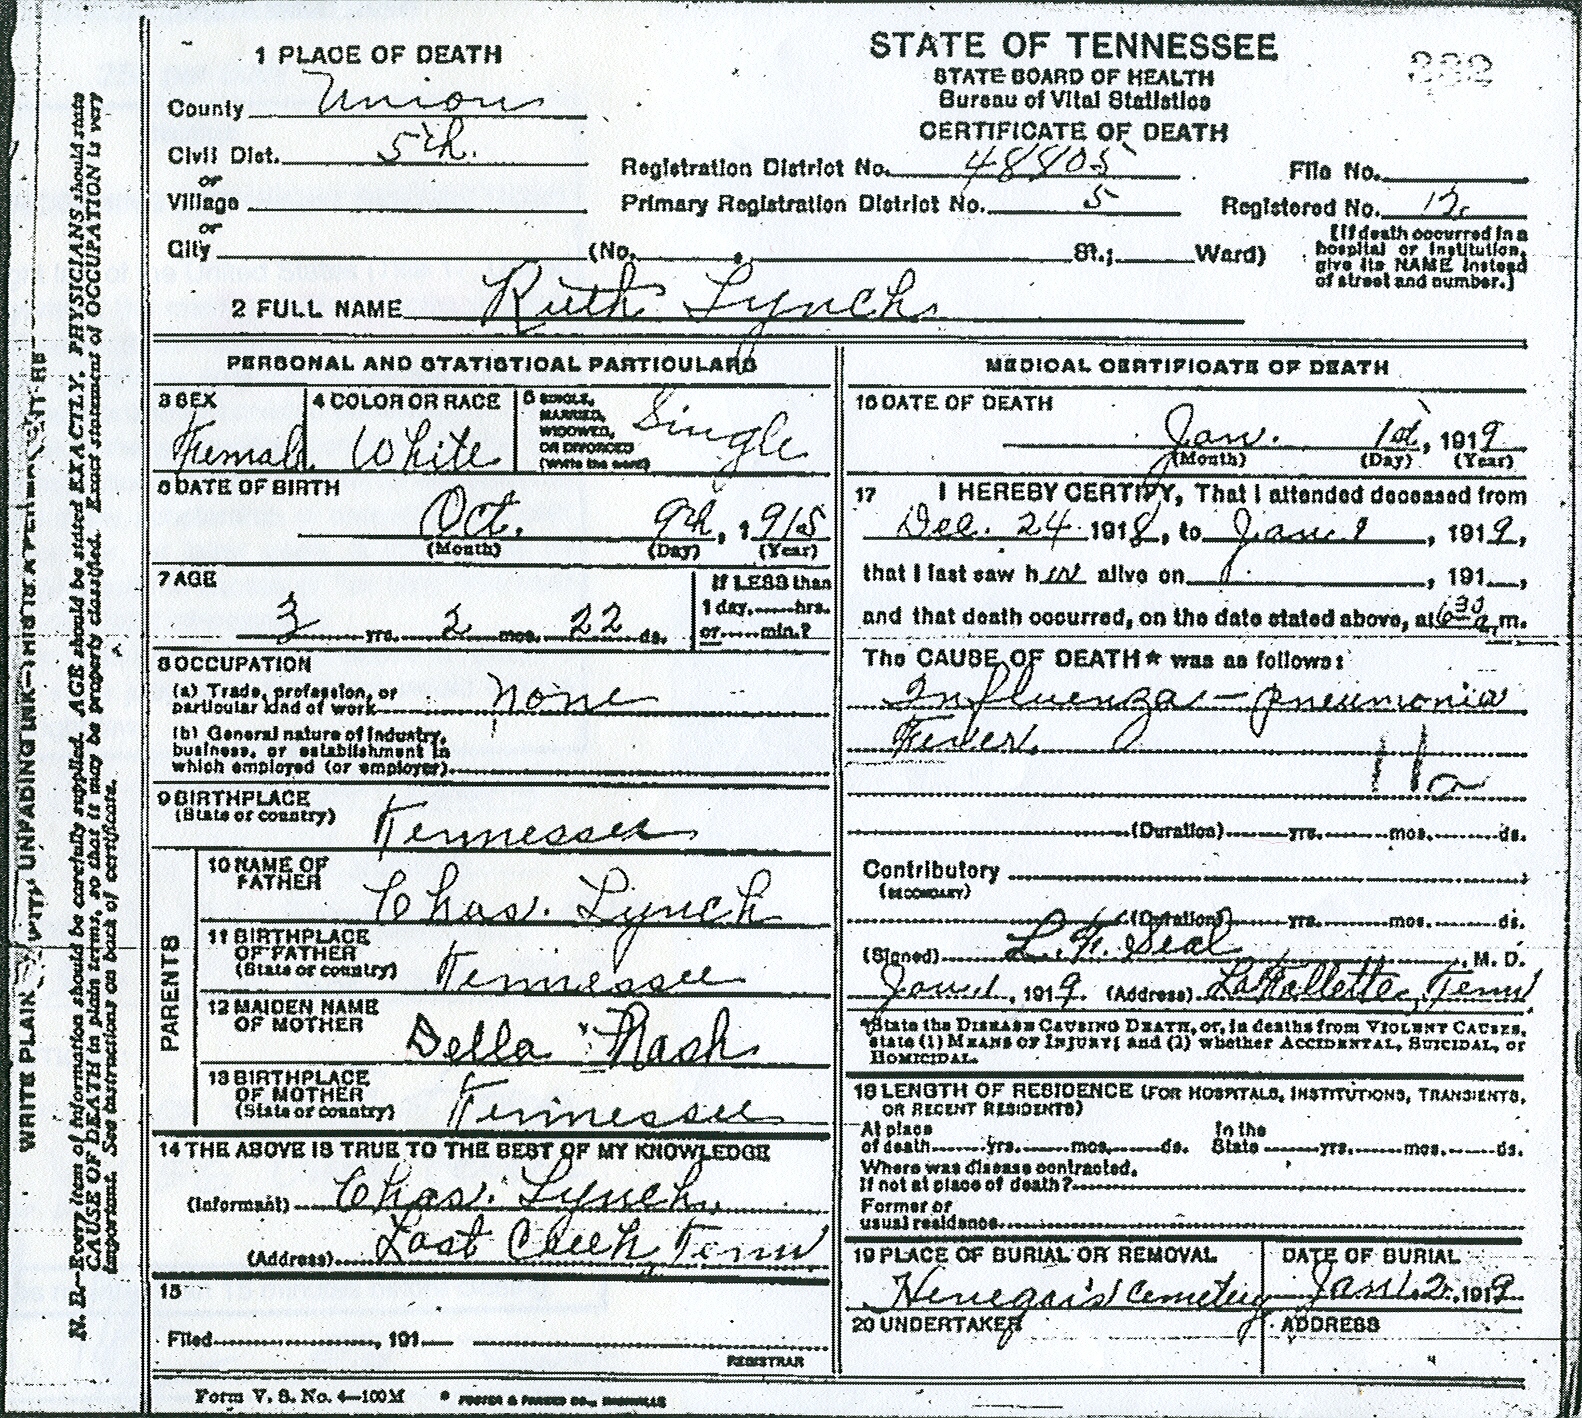 332
1 PLACE OF DEATH
County Union
Civil Dist. 5th.
or
Village
or
City (No. , St.; Ward)
STATE OF TENNESSEE
STATE BOARD OF HEALTH
Bureau of Vital Statistics
CERTIFICATE OF DEATH
Registration District No. 48805 File No.
Primary Registration District No. 5 Registered No. 12
[If death occurred in a
hospital or institution,
give its NAME instead
of street and number.]
2 FULL NAME Ruth Lynch
PERSONAL AND STATISTICAL PARTICULARS
3 SEX
Female
4 COLOR OR RACE
White
5 SINGLE,
MARRIED,
WIDOWED,
OR DIVORCED
(Write the word)
Single
6 DATE OF BIRTH
Oct. 9th, 1915
(Month) (Day) (Year)
7 AGE
3 yrs. 2 mos. 22 ds.
If LESS than
1 day,......hrs.
or......min.?
8 OCCUPATION
(a) Trade, profession, or
particular kind of work none
(b) General nature of Industry,
business, or establishment in
which employed (or employer)
9 BIRTHPLACE
(State or country) Tennessee
PARENTS
10 NAME OF
FATHER Chas. Lynch
11 BIRTHPLACE
OF FATHER
(State or country) Tennessee
12 MAIDEN NAME
OF MOTHER Della Nash
13 BIRTHPLACE
OF MOTHER
(State or country) Tennessee
14 THE ABOVE IS TRUE TO THE BEST OF MY KNOWLEDGE
(Informant) Chas. Lynch,
(Address) Lost Creek, Tenn
15
Filed , 191
REGISTRAR
MEDICAL CERTIFICATE OF DEATH
16 DATE OF DEATH
Jan. 1st, 1919
(Month) (Day) (Year)
17 I HEREBY CERTIFY, That I attended deceased from
Dec. 24 1918, to Jan. 1, 1919,
that I last saw her alive on , 191 ,
and that death occurred, on the date stated above, at 6 30 a. m.
The CAUSE OF DEATH* was as follows:
Influenza - pneumonia
Fever.
11a
(Duration) yrs. mos. ds.
Contributory
(SECONDARY)
(Duration) yrs. mos. ds.
(Signed) L. F. Seal, M. D.
Jan. 1, 1919. (Address) LaFollette, Tenn
*State the DISEASE CAUSING DEATH, or, in deaths from VIOLENT CAUSES,
state (1) MEANS OF INJURY; and (2) whether ACCIDENTAL, SUICIDAL, or
HOMICIDAL.
18 LENGTH OF RESIDENCE (FOR HOSPITALS, INSTITUTIONS, TRANSIENTS,
OR RECENT RESIDENTS)
At place In the
of death yrs. mos. ds. State yrs. mos. ds.
Where was disease contracted,
If not at place of death?
Former or
usual residence
19 PLACE OF BURIAL OR REMOVAL
Henegar's Cemetery
DATE OF BURIAL
Jan. 2, 1919
20 UNDERTAKER
ADDRESS
Form V. S. No. 4—100M
FOSTER & PARKES CO., NASHVILLE
N. B.—Every item of information should be carefully supplied. AGE should be stated EXACTLY. PHYSICIANS should state
CAUSE OF DEATH in plain terms, so that it may be properly classified. Exact statement of OCCUPATION is very
important. See instructions on back of certificate.
WRITE PLAIN WITH UNFADING INK—THIS IS A PERMANENT RE